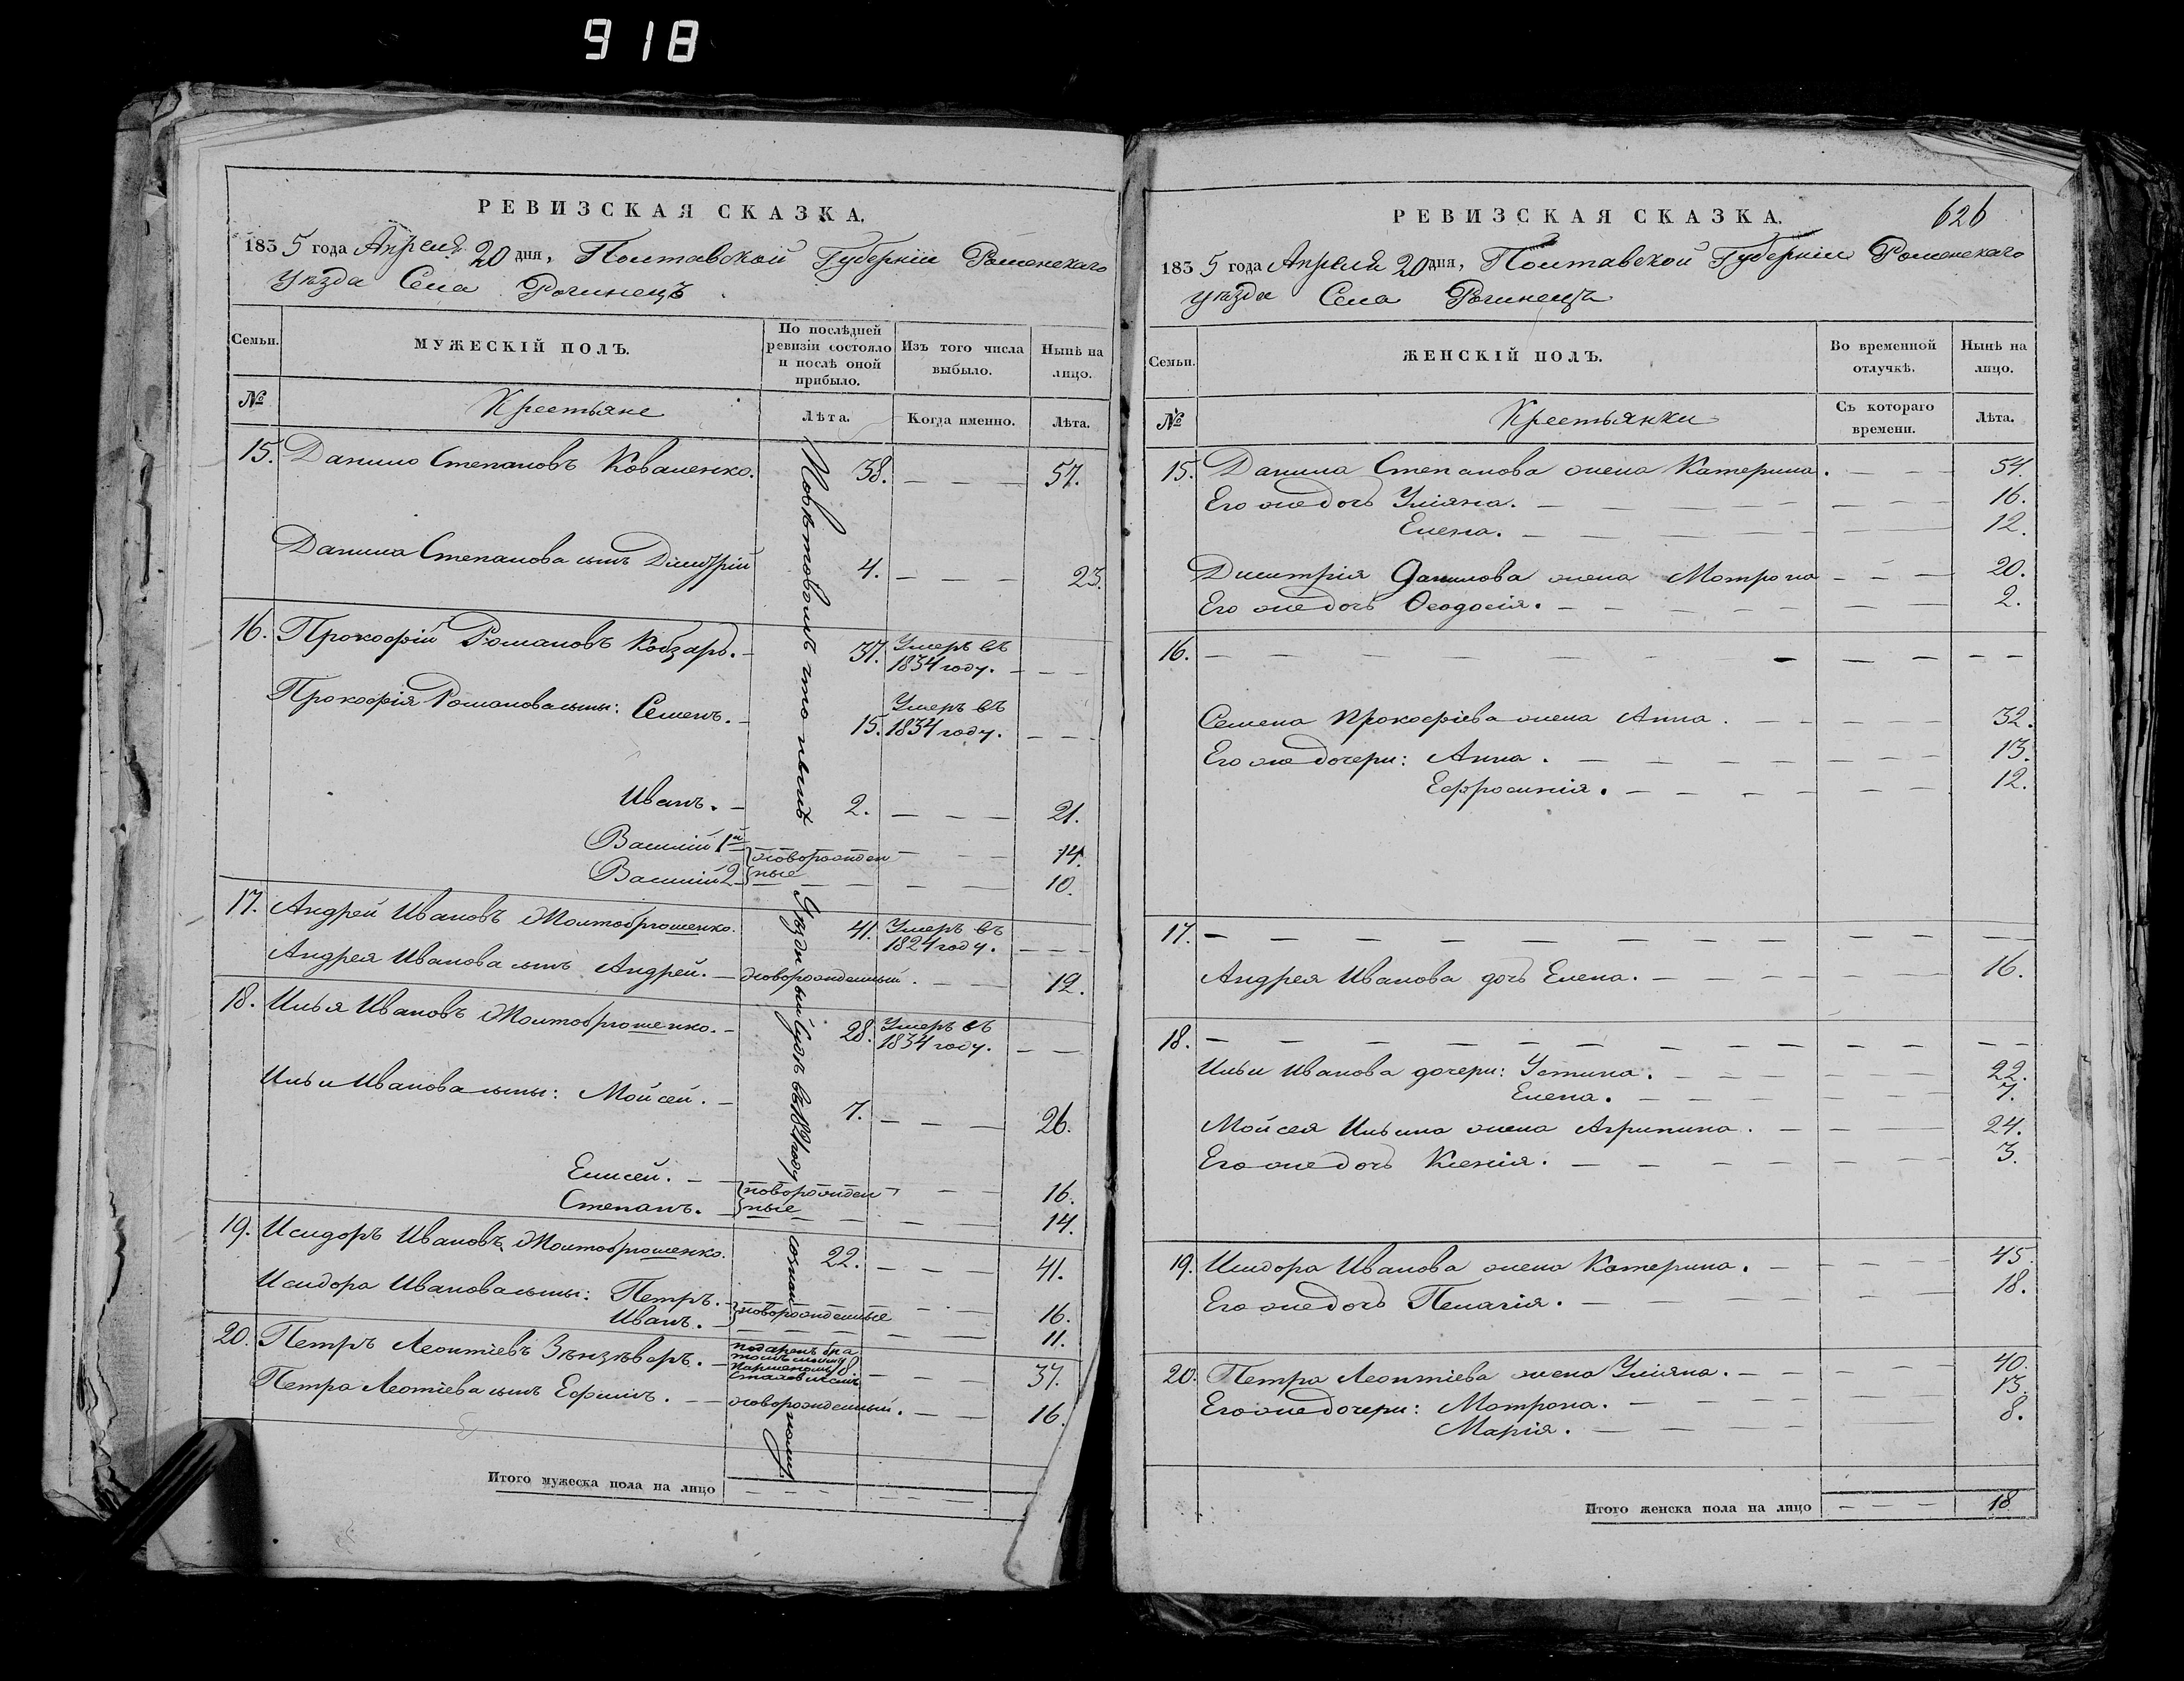 918
РЕВИЗСКАЯ СКАЗКА.
1835 года Апреля 20 дня, Полтавской Губернiи Роменскаго
уѣзда Села Рогинецъ
Семьи.
МУЖЕСКIЙ ПОЛЪ.
По послѣдней ревизiи состояло и послѣ оной прибыло.
Изъ того числа выбыло.
Нынѣ на лицо.
№
Крестьяне
Лѣта.
Когда именно.
Лѣта.
15. Данило Степановъ Коваленко. 38. — — — 57.
Данила Степанова сынъ Дмитрiй 4. — — — 23.
16. Прокофiй Романовъ Кобзарь. — 37. Умеръ въ 1834 году. — — —
Прокофiя Романова сыны: Семенъ. — 15. Умеръ въ 1834 году. — — —
Иванъ. — 2. — — — 21.
Василiй 1й новорожден — — — 14.
Василiй 2 ные — — — 10.
17. Андрей Ивановъ Жолтобрюшенко. 41. Умеръ въ 1824 году. — — —
Андрея Иванова сынъ Андрей. — новорожденный. — — 12.
18. Илья Ивановъ Жолтобрюшенко. — 28. Умеръ въ 1834 году. — —
Ильи Иванова сыны: Мойсей. — 7. — — — 26.
Елисей. — новорожден — — — 16.
Степанъ. — ные — — — 14.
19. Исидоръ Ивановъ Жолтобрюшенко. 22. — — — 41.
Исидора Иванова сыны: Петръ. — новорожденные — — 16.
Иванъ. — — — — 11.
20. Петръ Леонтiевъ — подаренъ бра — — — 37.
Петра Леонтiева сынъ Ефимъ. — — новорожденный. — — 16.
что нынѣ
Итого мужеска пола на лицо — — — — — — —
РЕВИЗСКАЯ СКАЗКА.
626
1835 года Апреля 20 дня, Полтавской Губернiи Роменскаго
уѣзда Села Рогинецъ
Семьи.
ЖЕНСКIЙ ПОЛЪ.
Во временной отлучкѣ.
Нынѣ на лицо.
№
Крестьянки
Съ котораго времени.
Лѣта.
15. Данила Степанова жена Катерина. — — — 54.
Его же дочь Улiяна. — — — 16.
Елена. — — — 12.
Дмитрiя Данилова жена Мотрона — — — 20.
Его же дочь Ѳеодосiя. — — — 2.
16. — — — — — —
Семена Прокофiева жена Анна. — — — 32.
Его же дочери: Анна. — — — 13.
Ефросинiя. — — — 12.
17. — — — — — —
Андрея Иванова дочь Елена. — — — 16.
18. — — — — — —
Ильи Иванова дочери: Устина. — — — 22.
Елена. — — — 7.
Мойсея Ильина жена Агрипина. — — — 24.
Его же дочь Ксенiя. — — — 3.
19. Исидора Иванова жена Катерина. — — — 45.
Его же дочь Пелагiя. — — — 18.
20. Петра Леонтiева жена Улiяна. — — — 40.
Его же дочери: Мотрона. — — — 13.
Марiя. — — — 8.
Итого женска пола на лицо — — — 18